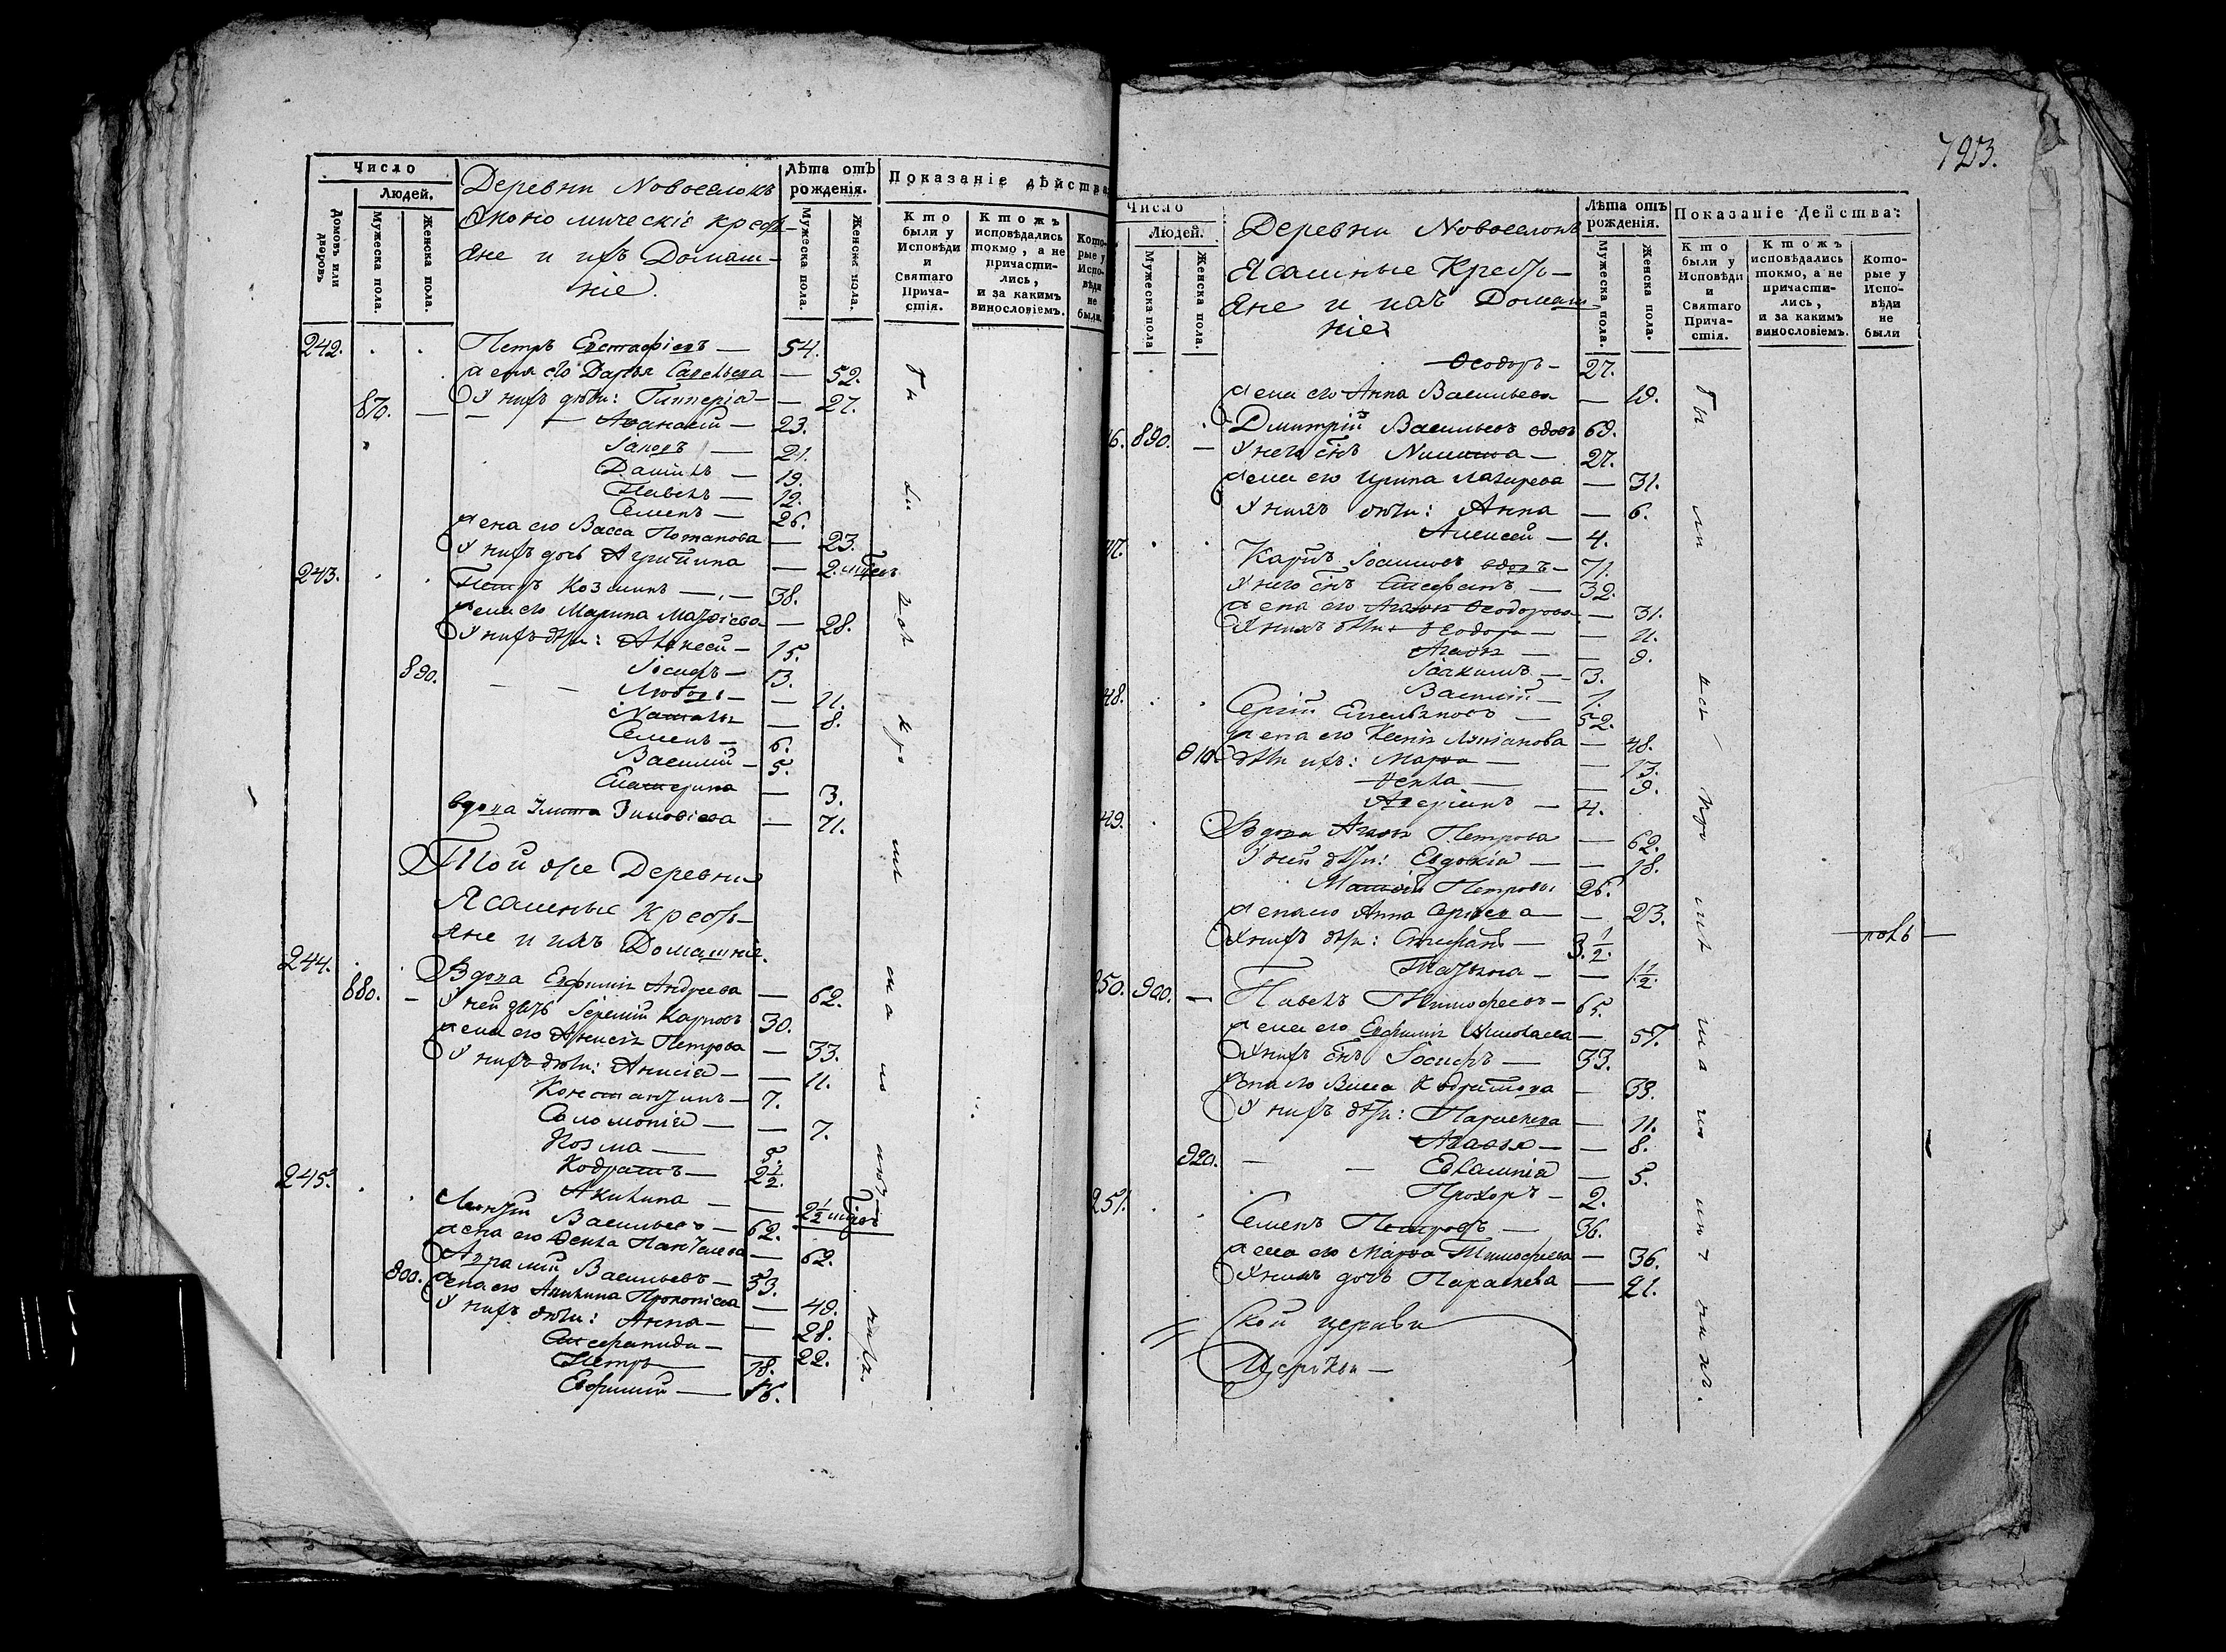 Число
Людей.
Домовъ или дворовъ
Мужеска пола.
Женска пола.
Деревни Новоселокъ
Економическіе кресть-
яне и ихъ Домаш-
ніе.
Лѣта отъ рожденія.
Мужеска пола.
Женска пола.
Показаніе дѣйства
Кто были у Исповѣди и Святаго Прича- стія.
Ктожъ исповѣдались токмо, а не причасти- лись, и за какимъ винословіемъ.
Кото- рые у Испо- вѣди не были.
242. Петръ Евстафіевъ — 54.
жена его Дарья Савельева — 52.
870. У нихъ дѣти: — 27.
Аѳанасій — 23.
Іаковъ — 21.
Даніилъ — 19.
Павелъ — 12.
Семенъ — 26.
жена его Васса Потапова — 23.
У нихъ дочь Агрипина — 2.
243. Петръ Козминъ — 38.
жена его Марина Матѳіева — 28.
У нихъ дѣти: Алексей — 15.
Іосифъ — 13.
890. Любовь — 11.
Наталья — 8.
Семенъ — 6.
Василій — 5.
Екатерина — 3.
вдова Зиновіева — 71.
Той же Деревни
Ясашные Кресть-
яне и ихъ Домашніе.
244. Вдова Евфимія Андреева — 62.
880. У ней зять Іеремій Карповъ 30.
жена его Анисія Петрова — 33.
У нихъ дѣти: Анисія — 11.
Константинъ — 7.
Соломонія — 7.
Козма — 5.
Кодратъ — 2½.
Акилина — 2½
245. Васильевъ — 62.
жена его Ѳекла Пантелева — 62.
Авраамій Васильевъ — 53.
900. жена его Акилина Прокопіева — 49.
У нихъ дѣти: Анна — 28.
22.
Петръ — 18.
Евфимій — 16.
бы ли ис по
723.
Число
Людей.
Мужеска пола
Женска пола.
Деревни Новоселокъ
Ясашные Кресть-
яне и ихъ Домаш-
ніе
Лѣта отъ рожденія.
Мужеска пола.
Женска пола.
Показаніе Дѣйства:
Кто были у Исповѣди и Святаго Прича- стія.
Ктожъ исповѣдались токмо, а не причасти- лись, и за какимъ винословіемъ.
Кото- рые у Испо- вѣди не были
Ѳеодоръ — 27.
жена его Анна Васильева — 19.
46. 890. Дмитрій Васильевъ вдовъ 69.
У него сынъ Никита — 27.
жена его Ирина Лазарева — 31.
У нихъ дѣти: Анна — 6.
Алексей — 4.
47. Карпъ Іоанновъ вдовъ — 71.
У него сынъ Стефанъ — 32.
жена его Агаѳья Ѳеодорова — 31.
У нихъ дѣти: Ѳеодора — 11.
Агаѳья — 9.
Іоакимъ — 3.
Василій — 1.
48. Сергій Емельяновъ — 52.
жена его Ксенія Лукіанова — 48.
910. дѣти ихъ: Марѳа — 13.
Ѳекла — 9.
4.
49. Вдова Агаѳья Петрова — 62.
У ней дѣти: Евдокія — 18.
Матѳій Петровъ 26.
жена его Анна Сергеева — 23.
У нихъ дѣти: Стефанъ — 3½.
Татьяна — 1½
250. 900. Павелъ Тимофеевъ — 65.
жена его Евфимія — 57.
У нихъ сынъ Іосифъ — 33.
жена его Васса Кодратова — 39.
У нихъ дѣти: Параскева — 11.
Агаѳья — 8.
920. Евлампія — 5.
Прохоръ — 2.
251. Семенъ Петровъ — 36.
жена его Марѳа Тимофеева — 36.
У нихъ дочь Параскева — 21.
ской церкви
бы ли